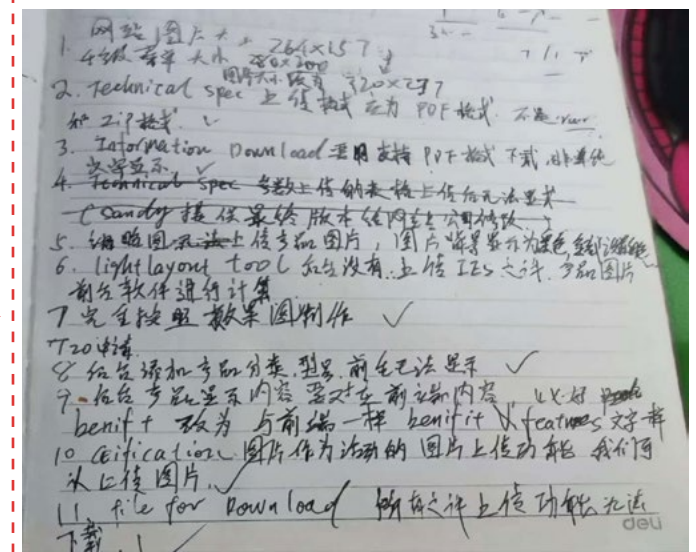 1. 网站图片大小 264×157
280×200
图片大小改为 320×237
2. Technical spec 上传格式应为 PDF格式. 不是rar
和 ZIP格式. ✓
3. Information Download 要用支持 PDF格式 下载, 非单纯
文字显示 ✓
4. Technical spec 参数上传的表格上传后无法显示
(Sandy 提供最终版本给网站公司修改)
5. 上传产品图片, 图片背景显示为黑色,
6. lightlayout tool 后台没有上传IES文件. 产品图片
前台软件进行计算
7 完全按照效果图制作 ✓
T20申请
8 后台添加产品分类, 型号, 前台无法显示 ✓
9. 后台产品显示内容要对应前端内容.
benift 改为 与前端一样 benifit features 文字一样
10 Ceification 图片作为活动的图片上传功能 我们可
以上传图片. ✓
11. file for Download 所有文件上传功能无法
下载. ✓
deli